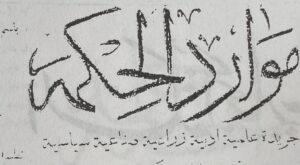 موارد الحكمة
جريدة علمية ادبية زراعية صناعية سياسية